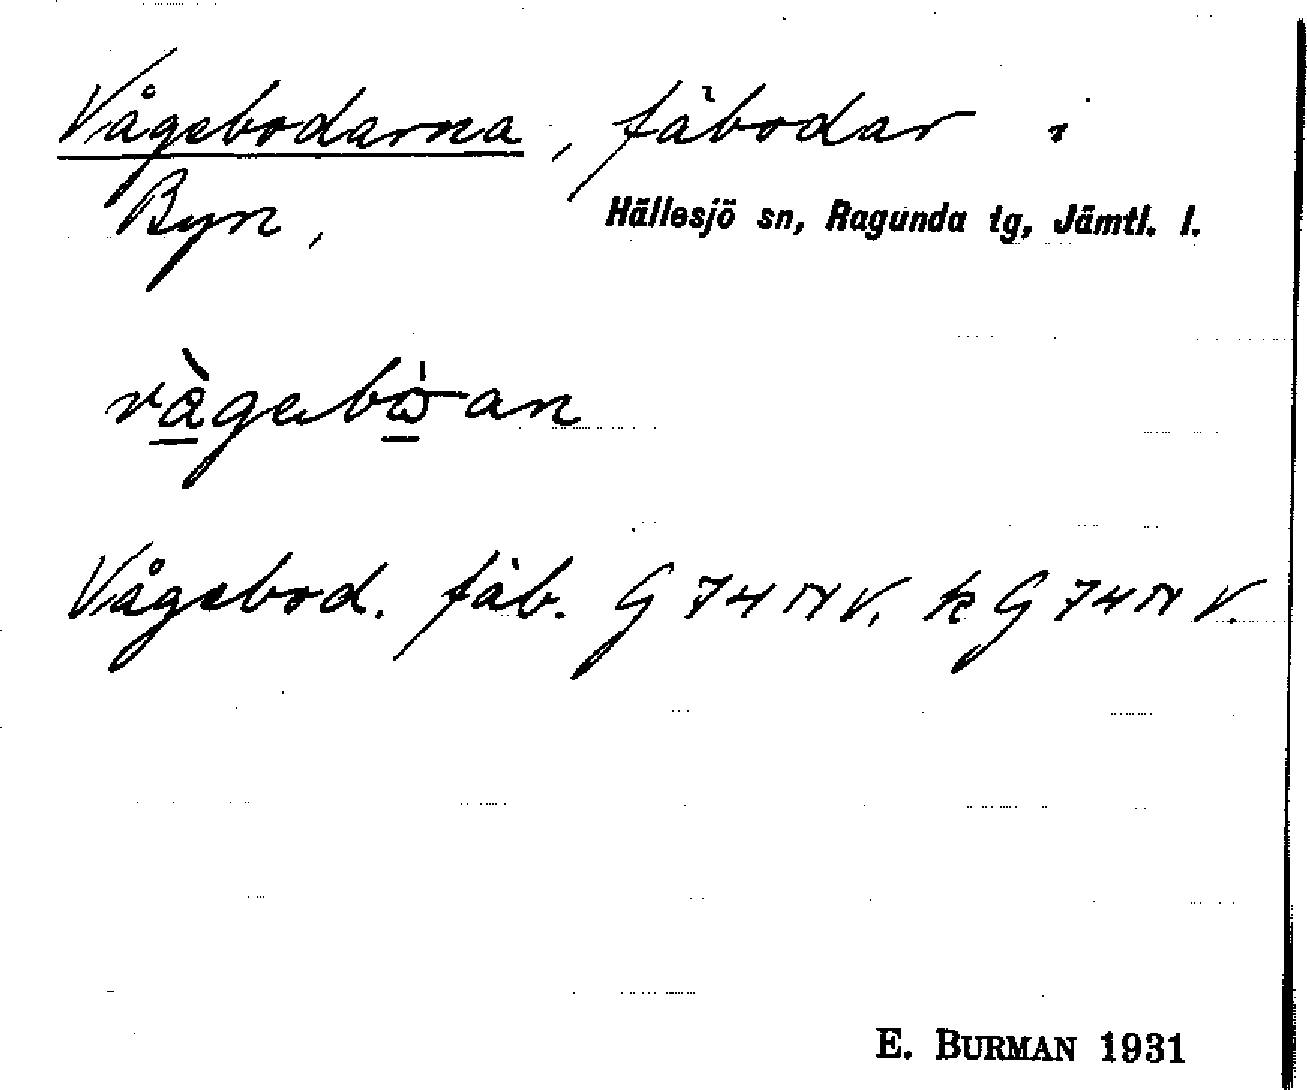 Vågebodarna, fäbodar i
Byn, Hällesjö sn, Ragunda tg, Jämtl. l.
Vågebod. fäb. G 74 NV. k G 74 N V.
E. BURMAN 1931